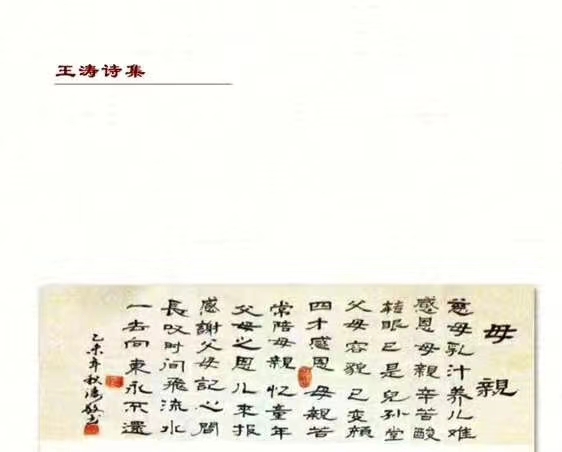 王涛诗集
母親
慈母乳汁养儿难
感恩母親辛苦酸
转眼已是兒孙堂
父母容貌已变颜
四才感恩母親苦
常陪母親忆童年
父母之恩儿来报
感謝父母記心間
長叹时间飛流水
一去向東永不還
乙未年秋涛敬书